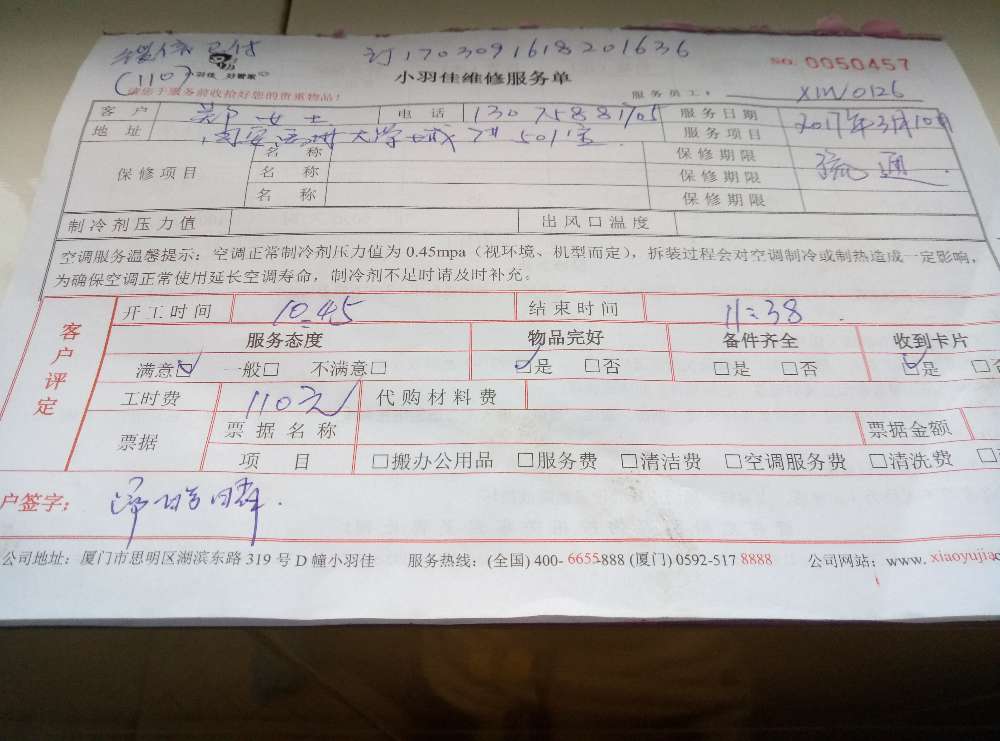 微信已付 订1703091618201636
(110) 小羽佳 好管家 小羽佳维修服务单 NO. 0050457
请您于服务前收拾好您的贵重物品! 服务员工: XIW0126
客户 女士 电话 13075881705 服务日期 2017年3月10日
地址 大学城 501室 服务项目 疏通
保修项目 名称 保修期限
名称 保修期限
名称 保修期限
制冷剂压力值 出风口温度
空调服务温馨提示:空调正常制冷剂压力值为0.45mpa(视环境、机型而定),拆装过程会对空调制冷或制热造成一定影响,
为确保空调正常使用延长空调寿命,制冷剂不足时请及时补充。
客户评定 开工时间 10:45 结束时间 11:38
服务态度 物品完好 备件齐全 收到卡片
满意☑ 一般□ 不满意□ ☑是 □否 □是 □否 ☑是 □否
工时费 110元 代购材料费
票据 票据名称 票据金额
项目 □搬办公用品 □服务费 □清洁费 □空调服务费 □清洗费
户签字:
公司地址:厦门市思明区湖滨东路319号D幢小羽佳 服务热线:(全国)400-6655-888(厦门)0592-5178888 公司网站:www.xiaoyujia